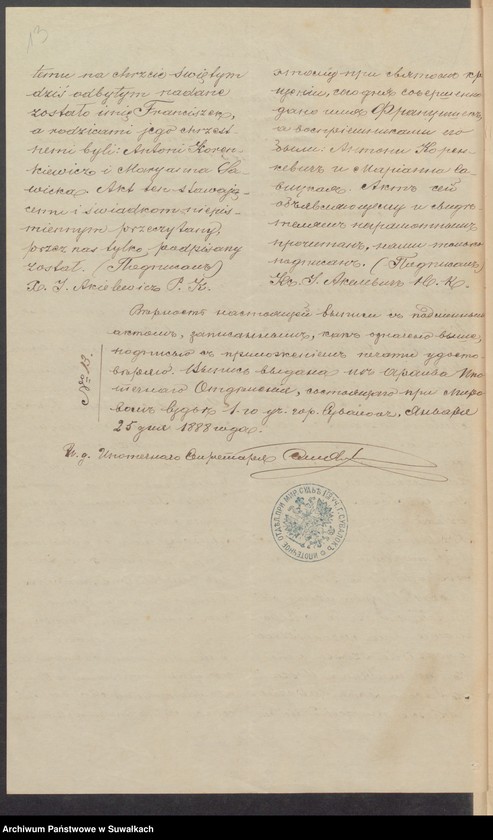 13
temu na chrzcie świętym
dziś odbytym nadane
zostało imię Franciszek,
a rodzicami jego chrzest-
nemi byli: Antoni Koren-
kiewicz i Maryanna Sa-
wicka. Akt ten stawają-
cemu i świadkom niepis-
miennym przeczytany,
przez nas tylko podpisany
został. (Подписалъ)
X. J. Akielewicz P. K.
этому при святомъ кре-
щеніи, сего дня совершенно
дано имя Францишекъ,
а воспріемниками его
были: Антони Корен-
кевичъ и Марианна Са-
вицкая. Актъ сей
объявляющему и свидѣ-
телямъ неграмотнымъ
прочитанъ, нами только
подписанъ. (Подписалъ)
Кс. І. Акелевичъ
Вѣрность настоящей выписи съ подлиннымъ
актомъ, записаннымъ, какъ означено выше,
подписью съ приложеніемъ печати удосто-
вѣряю. Выпись выдана изъ Архива Ипо-
течнаго Отдѣленія, состоящаго при Миро-
вомъ Судьѣ 1-го уч. гор. Сувалокъ, Января
25 дня 1888 года.
№ 13.
И. д. Ипотечнаго Секретаря
ИПОТЕЧНОЕ ОТДѢЛ. ПРИ МИР. СУДЬѢ I УЧ. Г. СУВАЛОКЪ
Archiwum Państwowe w Suwałkach